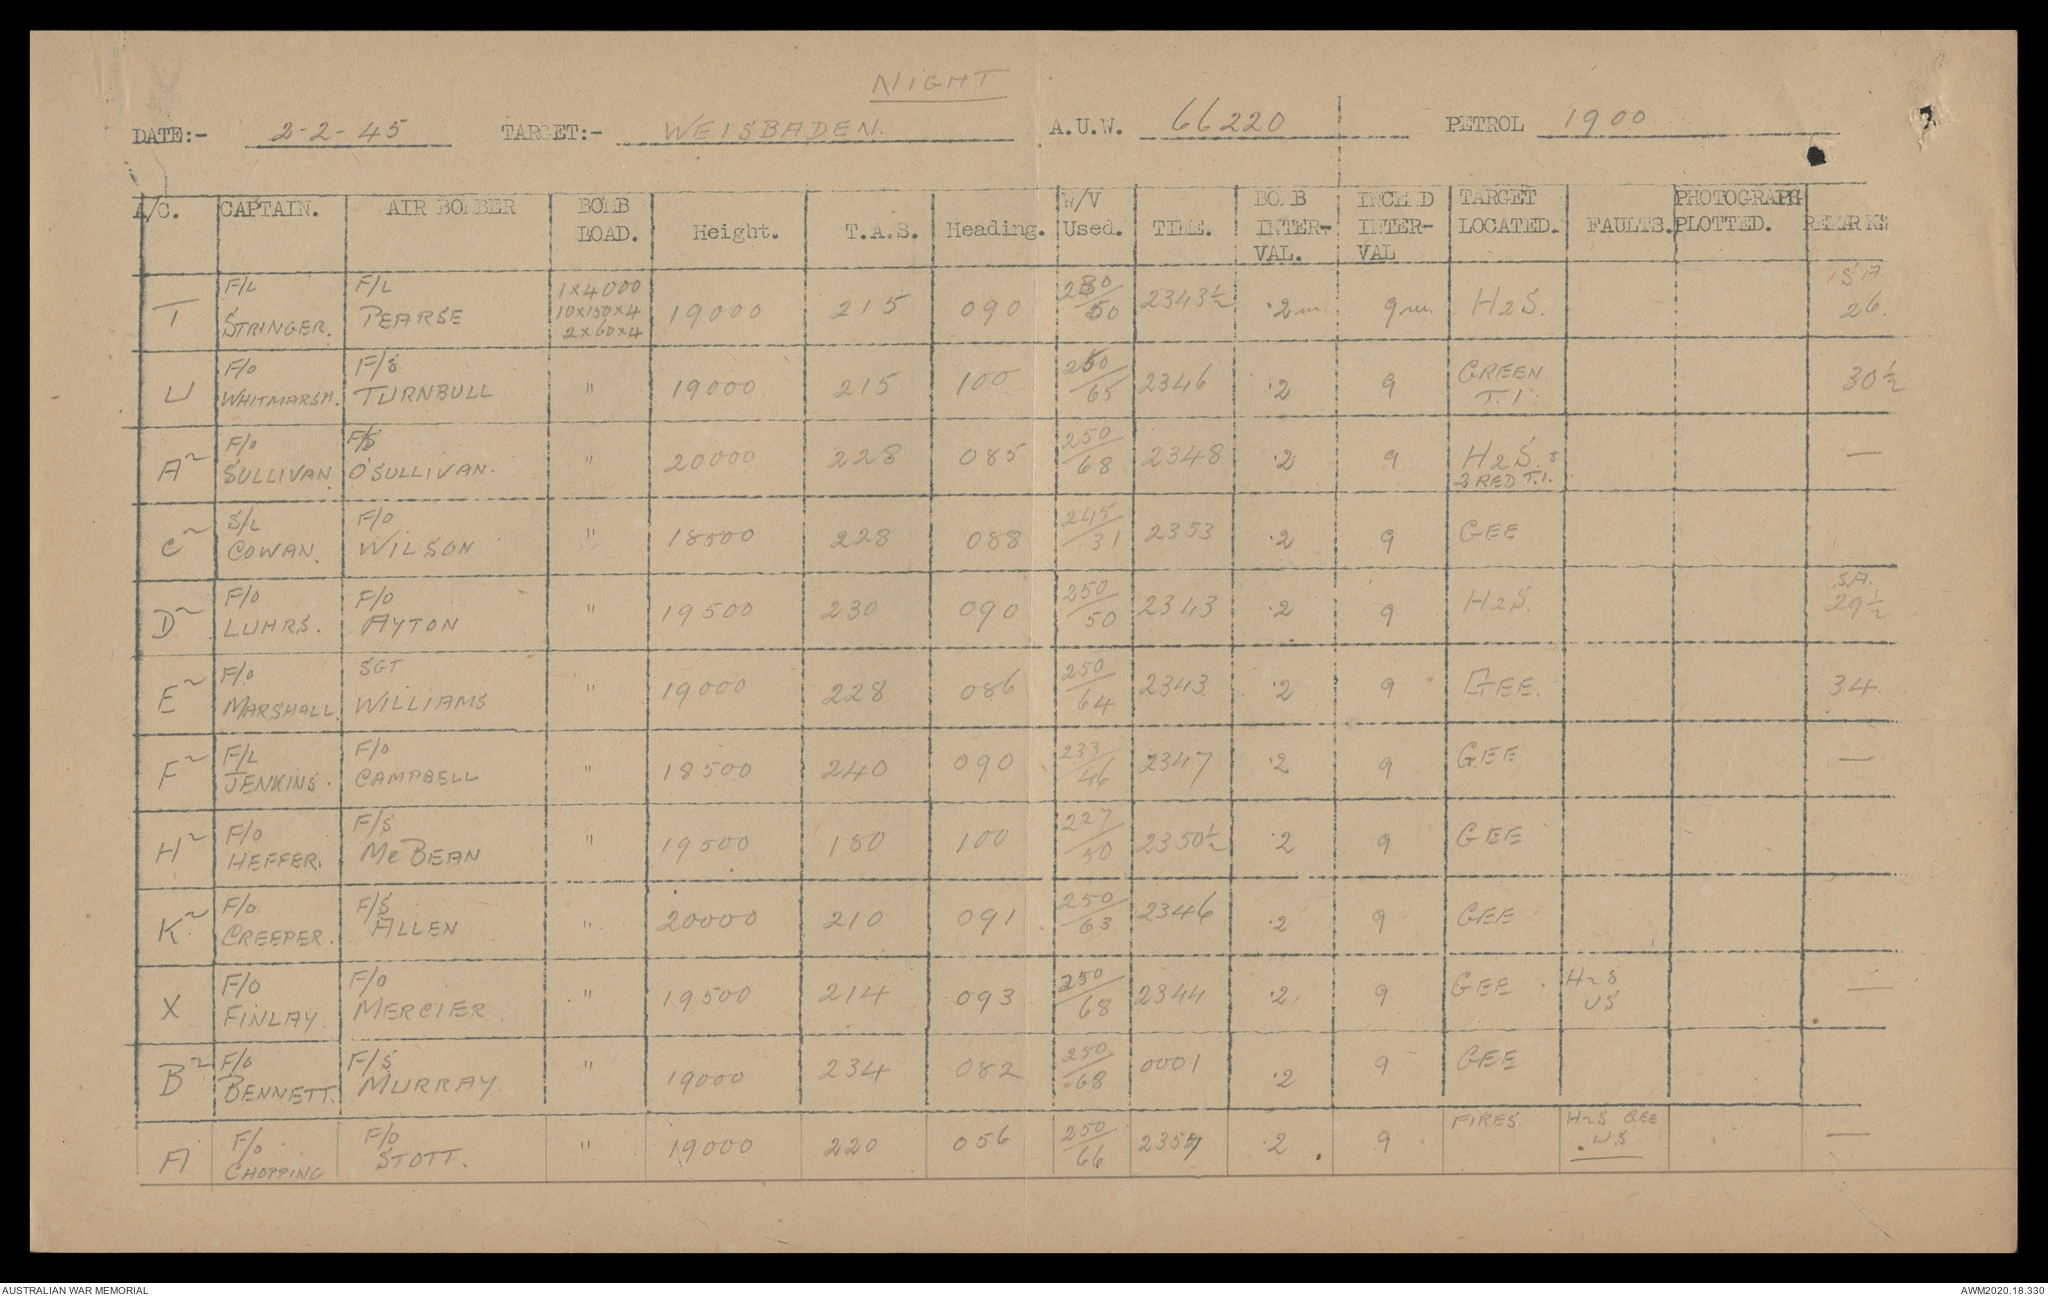 NIGHT
DATE:- 2-2-45 TARGET:- WEISBADEN. A.U.W. 66220 PETROL 1900
A/C. CAPTAIN. AIR BOMBER BOMB LOAD. Height. T.A.S. Heading. W/V Used. TIME. BOMB INTER-VAL. INCEND INTER-VAL TARGET LOCATED. FAULTS. PHOTOGRAPH PLOTTED. REMARKS
T F/L STRINGER. F/L PEARSE 1x4000 10x150x4 2x60x4 19000 215 090 230/50 2343½ .2 m 9 m. H2S. 26.
U F/O WHITMARSH. F/S TURNBULL " 19000 215 100 250/65 2346 .2 9 GREEN T.I 30½
A2 F/O SULLIVAN F/S O'SULLIVAN. " 20000 228 085 250/68 2348 .2 9 H2S & 2 RED T.I. —
C2 S/L COWAN. F/O WILSON " 18500 228 088 245/31 2353 .2 9 GEE
D2 F/O LUHRS. F/O AYTON " 19500 230 090 250/50 2343 .2 9 H2S. S.A. 29½
E2 F/O MARSHALL. SGT WILLIAMS " 19000 228 086 250/64 2343 .2 9 GEE. 34
F2 F/L JENKINS. F/O CAMPBELL " 18500 240 090 233/46 2347 .2 9 GEE —
H2 F/O HEFFER. F/S McBEAN " 19500 180 100 227/50 2350½ .2 9 GEE
K2 F/O CREEPER. F/S ALLEN " 20000 210 091 250/63 2346 .2 9 GEE
X F/O FINLAY. F/O MERCIER " 19500 214 093 250/68 2344 .2 9 GEE H2S US —
B2 F/O BENNETT. F/S MURRAY. " 19000 234 082 250/68 0001 .2 9 GEE
A F/O CHOPPING F/O STOTT. " 19000 220 056 250/66 .2 9 FIRES. H2S GEE U.S —
AUSTRALIAN WAR MEMORIAL AWM2020.18.330